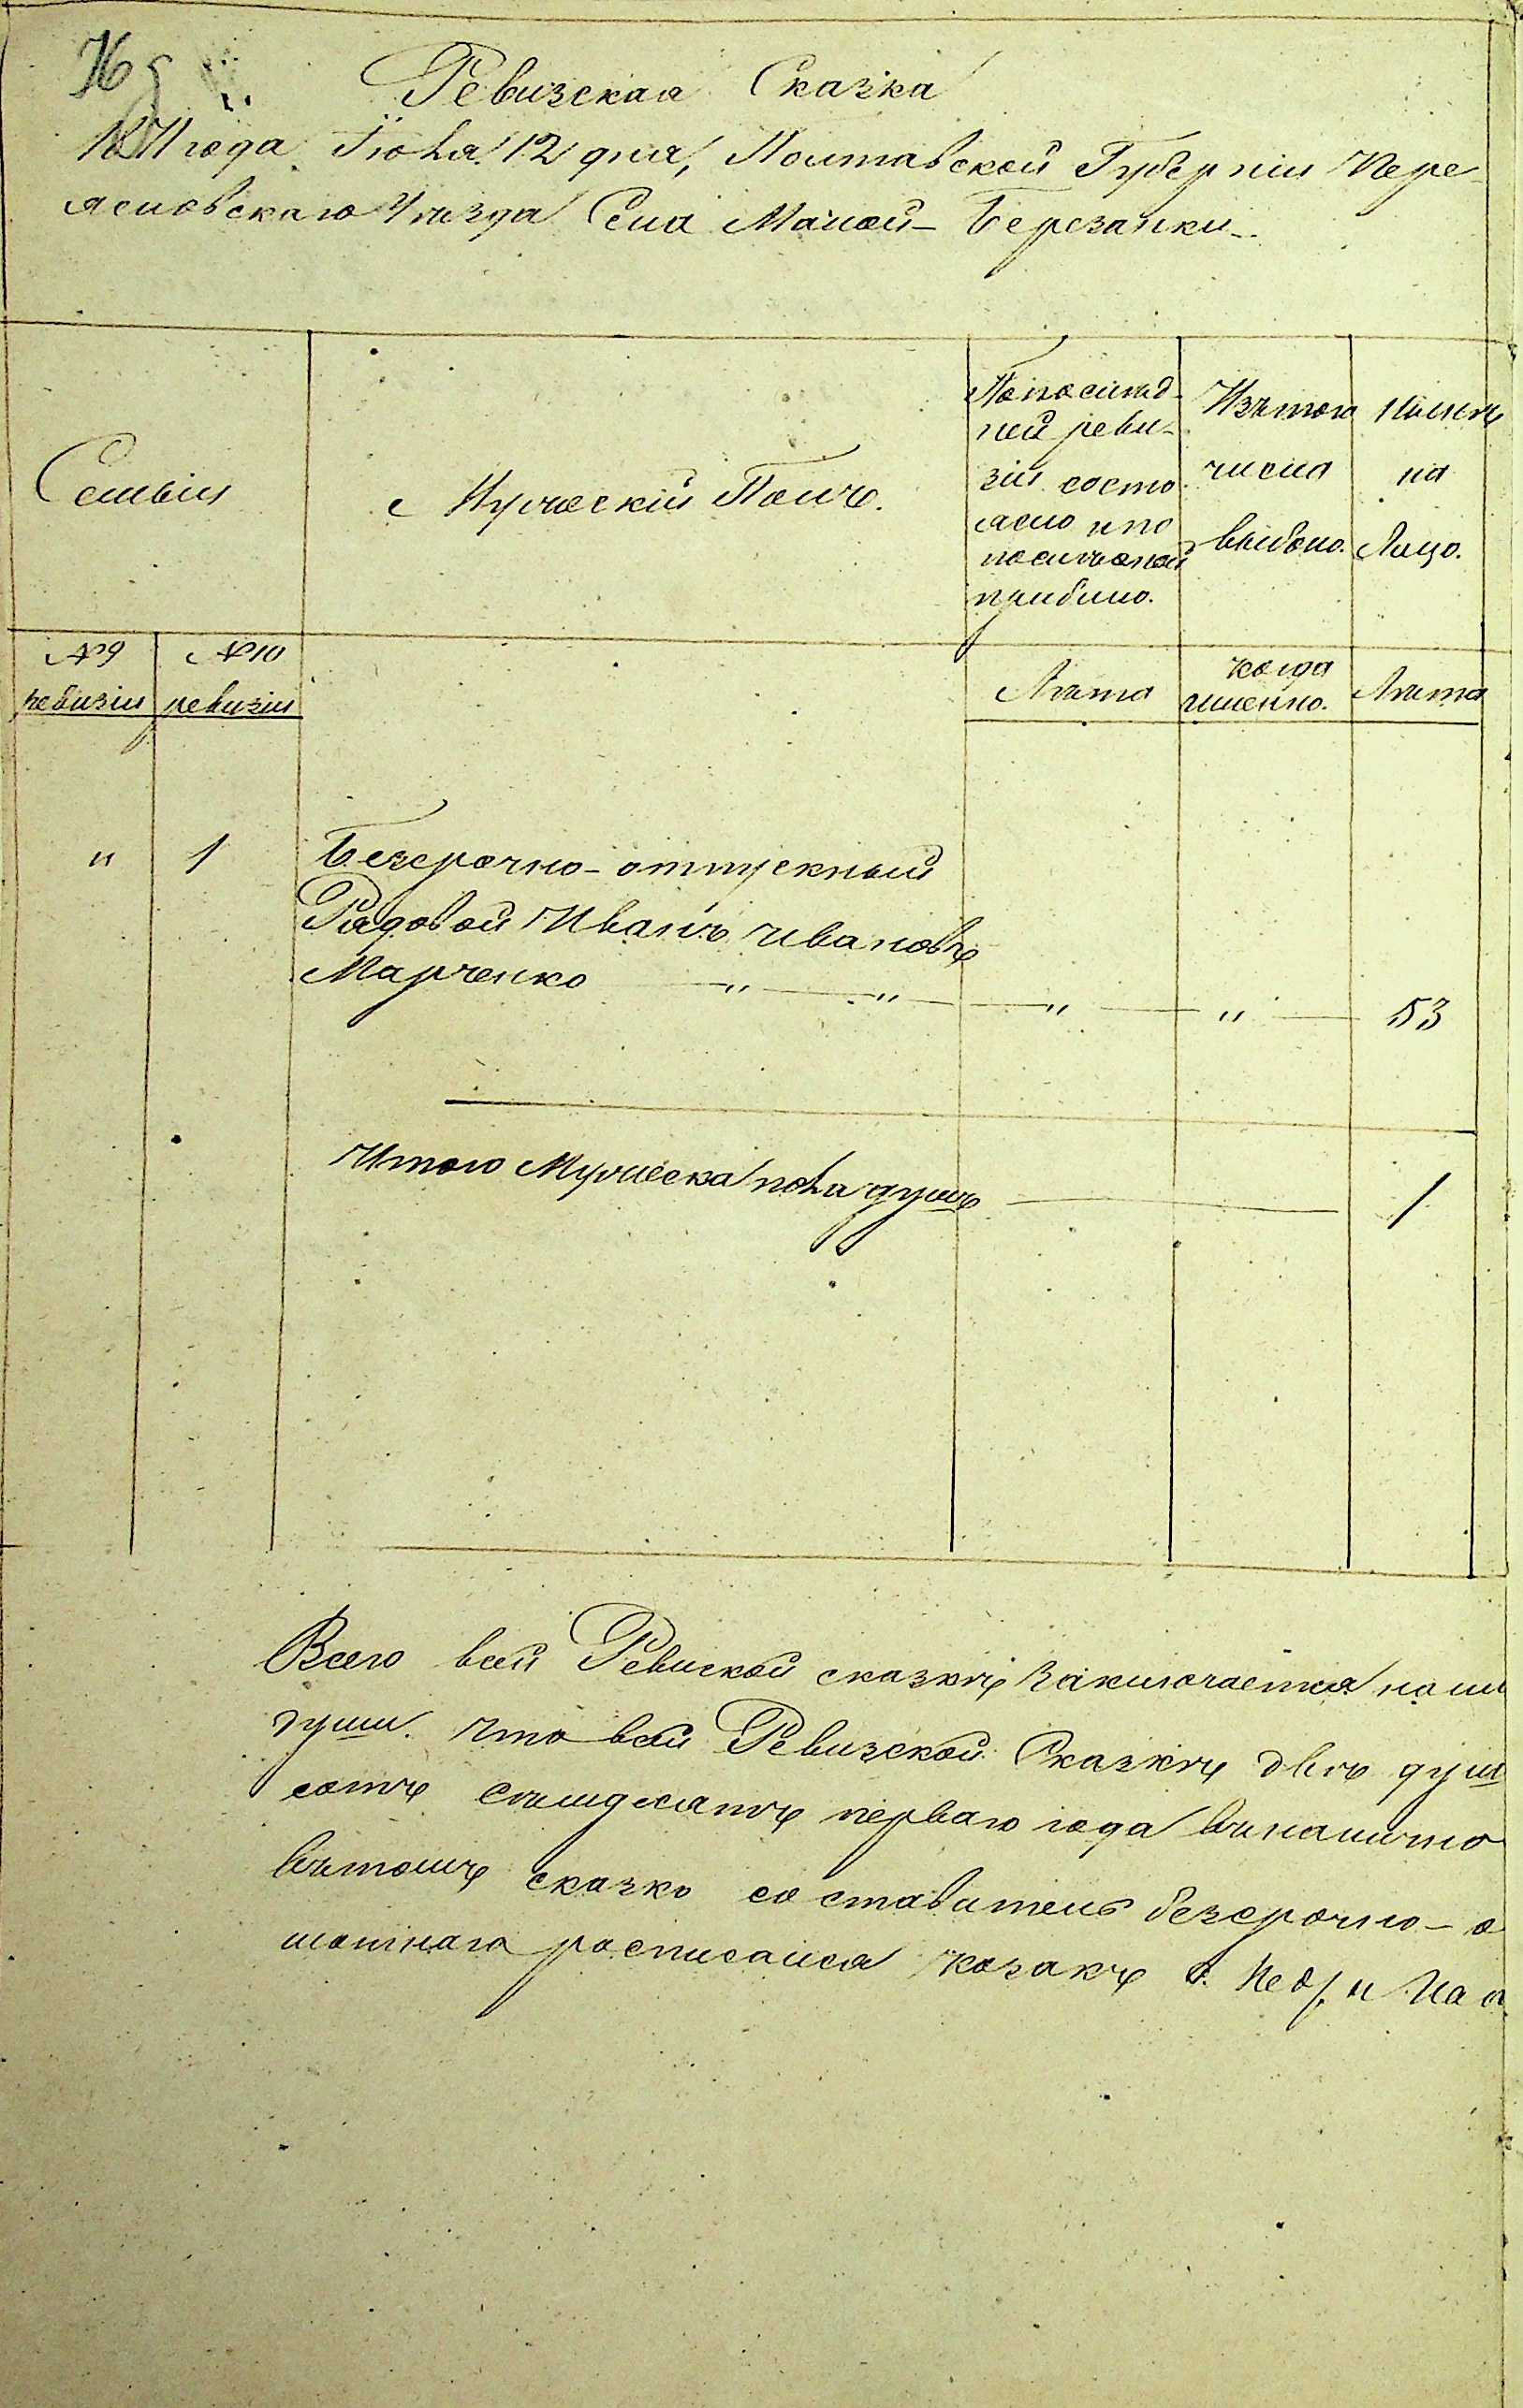 Ревизская Сказка
1871 года Іюня 12 дня, Полтавской Губерніи Пере-
яславскаго Уѣзда Села Малой-Березанки
Семьи
Мужескій Полъ.
По послѣд-
ней реви-
зіи состо
ясло и по
послѣдней
прибыло.
Изъ того
числа
выбыло.
Нынѣ
на
Лицо.
№ 9
ревизіи
№ 10
ревизіи
Лѣта
когда
именно.
Лѣта
" 1 Безсрочно-отпускный
Рядовой Иванъ Ивановъ
Марченко " " " " 53
Итого Мужеска пола душъ 1
Всего всей Ревиской сказкѣ заключается
души. что всей Ревизской Сказкѣ двѣ душ
сотъ семдесятъ перваго года
въ томъ сказко составитель безсрочно-о
мотнаго росписался козакъ